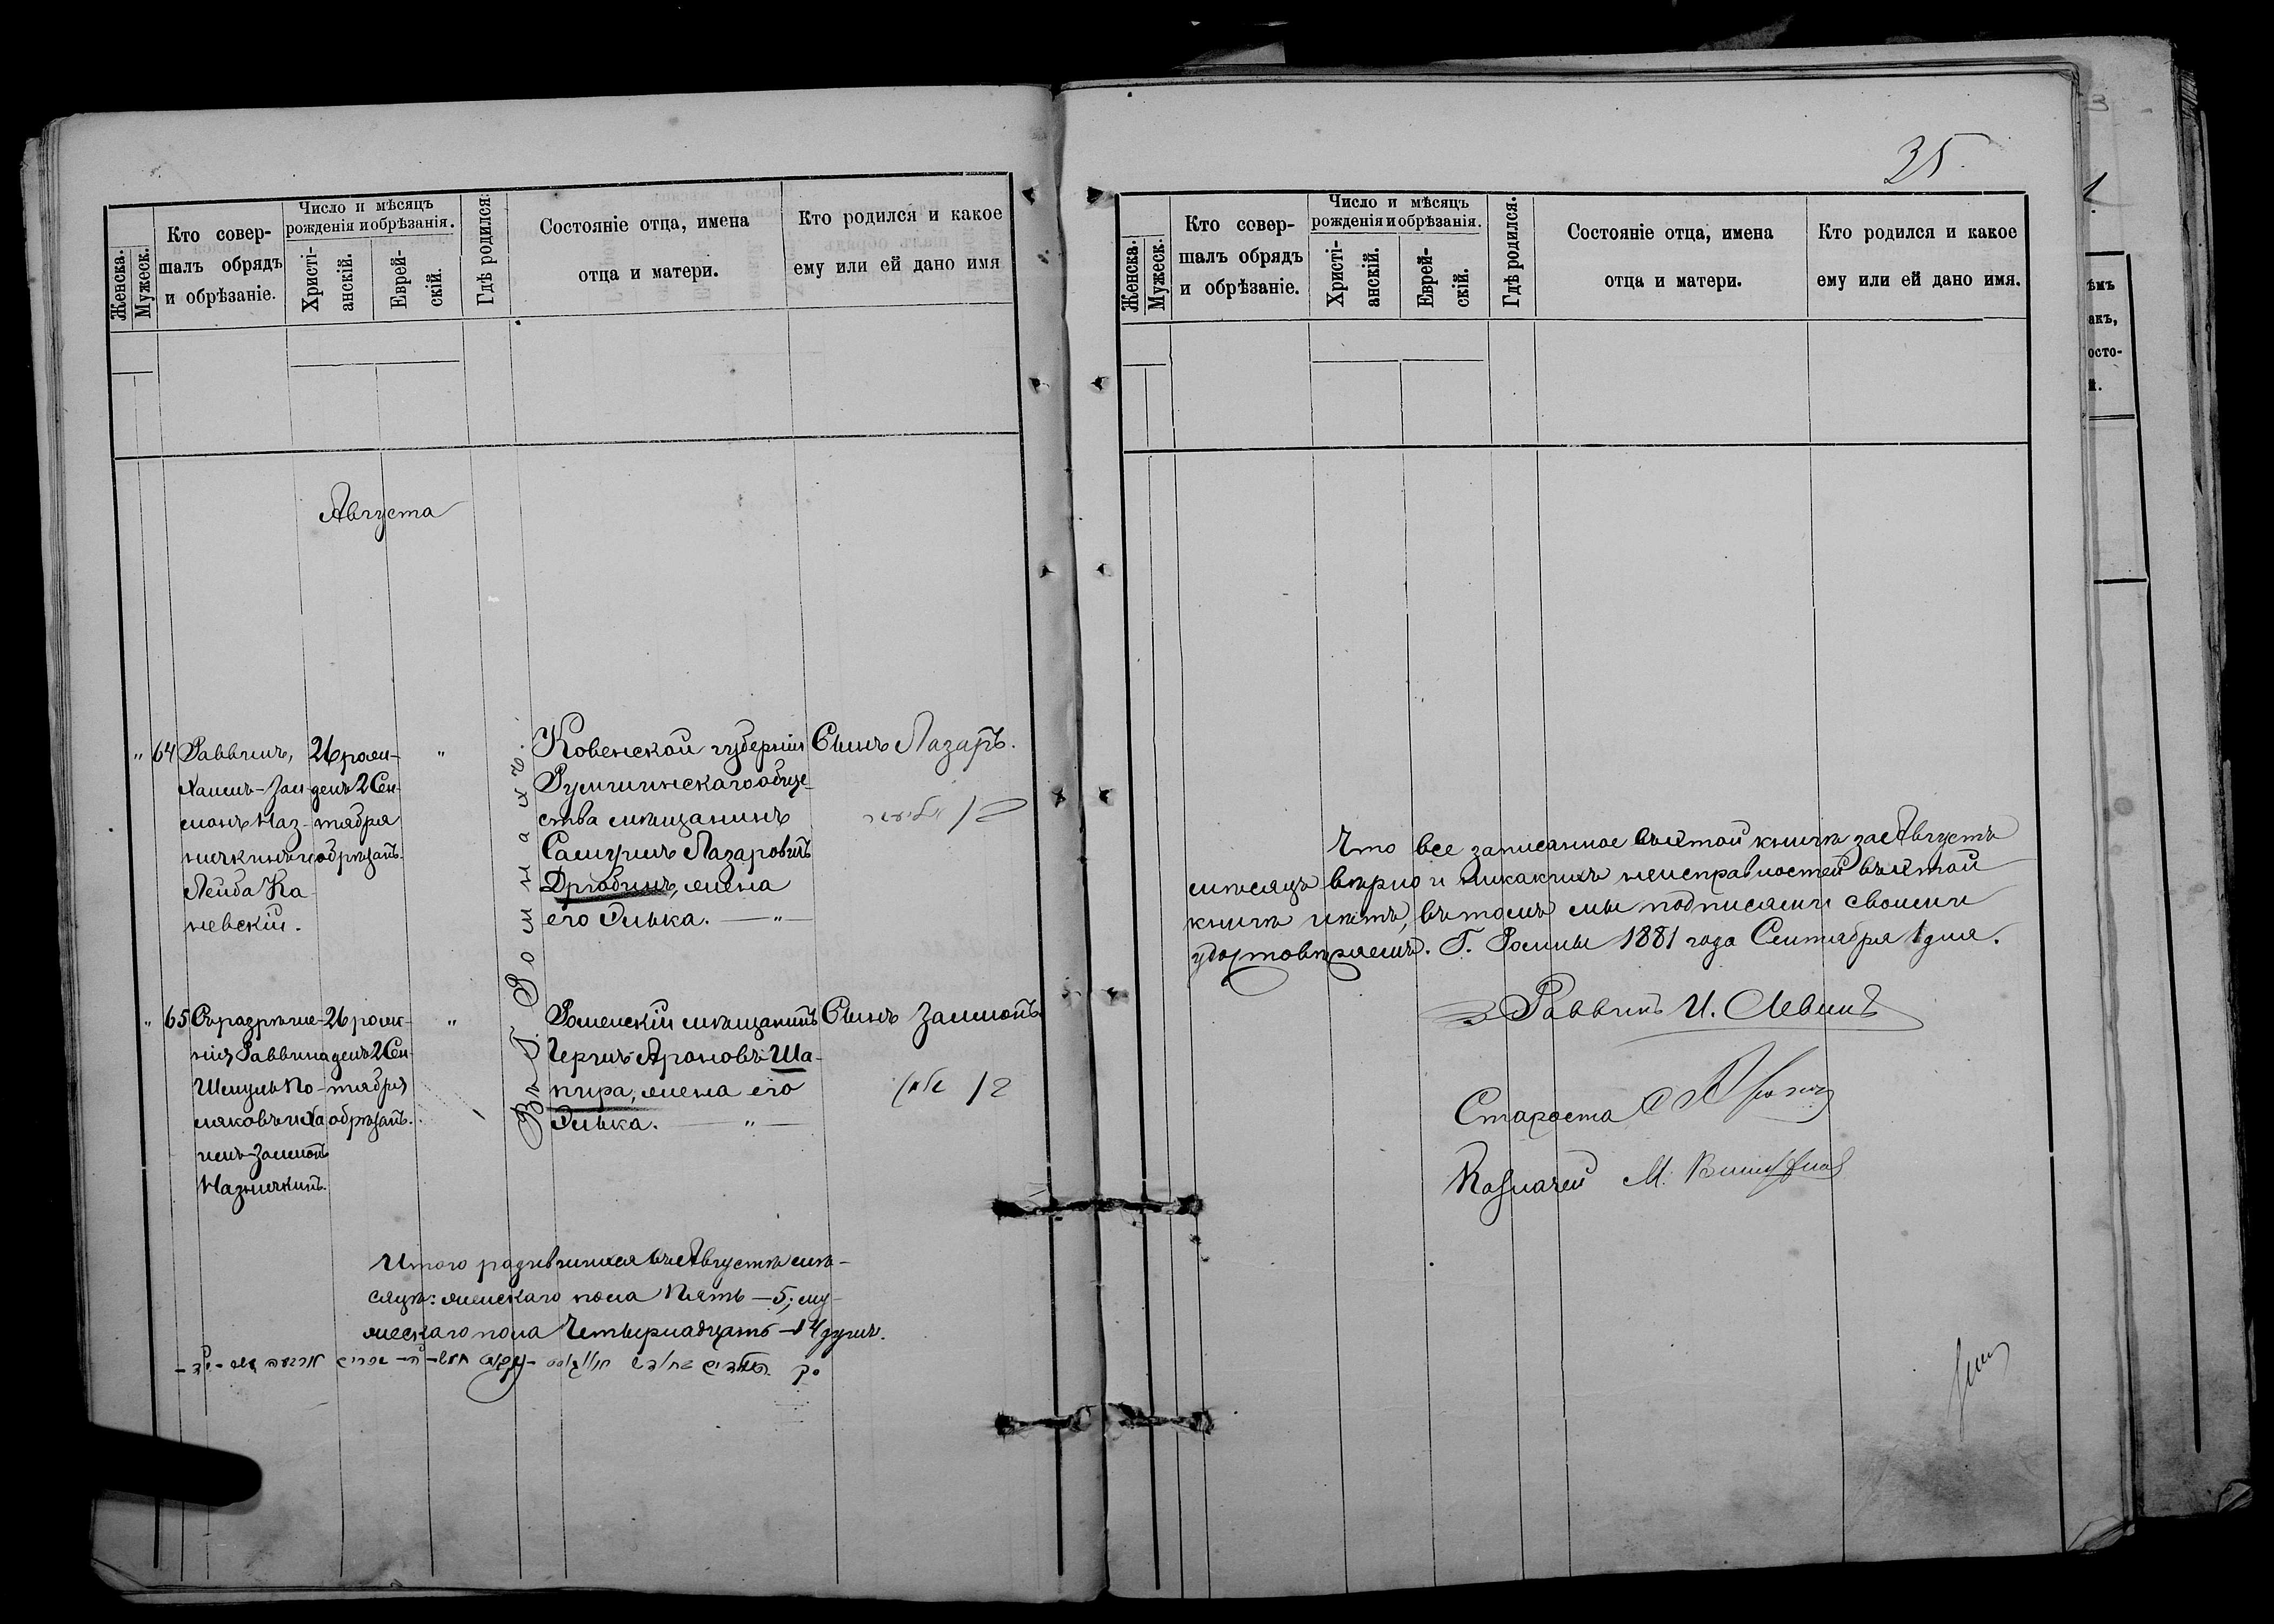 Женска.
Мужеск.
Кто совер-
шалъ обрядъ
и обрѣзаніе.
Число и мѣсяцъ
рожденія и обрѣзанія.
Христі-
анскій.
Еврей-
скій.
Гдѣ родился.
Состояніе отца, имена
отца и матери.
Кто родился и какое
ему или ей дано имя
Августа
" 64
Раввинъ,
Хаимъ-Зал-
монъ Маз-
ничкинъ и
Лейба Ка-
невскій.
26 рож-
денъ 2 Сен-
тября
обрѣзанъ.
"
Въ Г. Ромнахъ.
Ковенской губерніи
Румшинскаго обще-
ства мѣщанинъ
Самуилъ Лазаровичъ
Дрябинъ, жена
его Ривка. — " —
Сынъ Лазаръ.
בן
" 65
Съ разрѣше-
нія Раввина
Шмуль По-
ляковъ и Ха
имъ-Залмонъ
Мазничкинъ.
26 рож-
денъ 2 Сен-
тября
обрѣзанъ.
"
Роменскій мѣщанинъ
Герцъ Ароновъ Ша-
пира, жена его
Ривка. — " —
Сынъ Залмонъ
בן
Итого родившихся въ Августѣ мѣ-
сяцѣ: женскаго пола Пять — 5; му-
жескаго пола Четырнадцать — 14 душъ.
35.
Женска.
Мужеск.
Кто совер-
шалъ обрядъ
и обрѣзаніе.
Число и мѣсяцъ
рожденія и обрѣзанія.
Христі-
анскій.
Еврей-
скій.
Гдѣ родился.
Состояніе отца, имена
отца и матери.
Кто родился и какое
ему или ей дано имя.
Что все записанное въ этой книгѣ за Августъ
мѣсяцъ вѣрно и никакихъ неисправностей въ этой
книгѣ нѣтъ, въ томъ мы подписями своими
удостовѣряемъ. Г. Ромны 1881 года Сентября 1 дня.
Раввинъ И. Левинъ
Староста
Казначей М.
ѣмъ
акъ,
осто-
й.